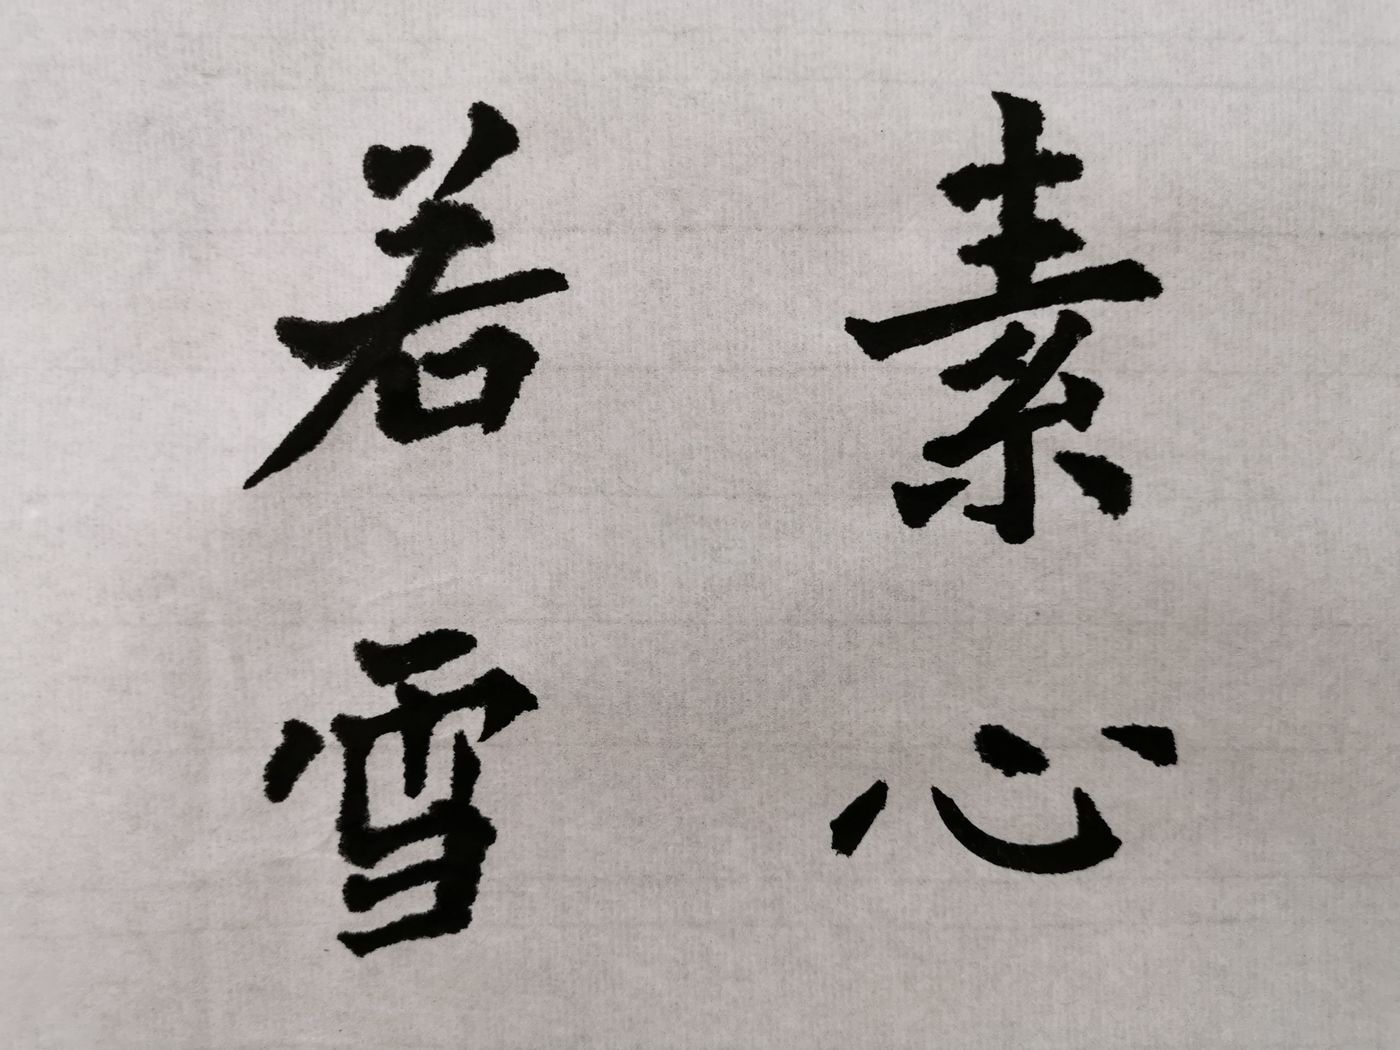 素心
若雪